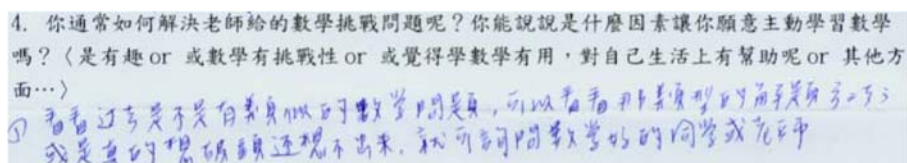 4. 你通常如何解決老師給的數學挑戰問題呢？你能說說是什麼因素讓你願意主動學習數學
嗎？〈是有趣 or 或數學有挑戰性 or 或覺得學數學有用，對自己生活上有幫助呢 or 其他方
面…〉
① 看看过去是不是有類似的數学問題，可以看看那類型的解題方式
或是真的想破頭还想不出来，就可詢問數学好的同学或老師